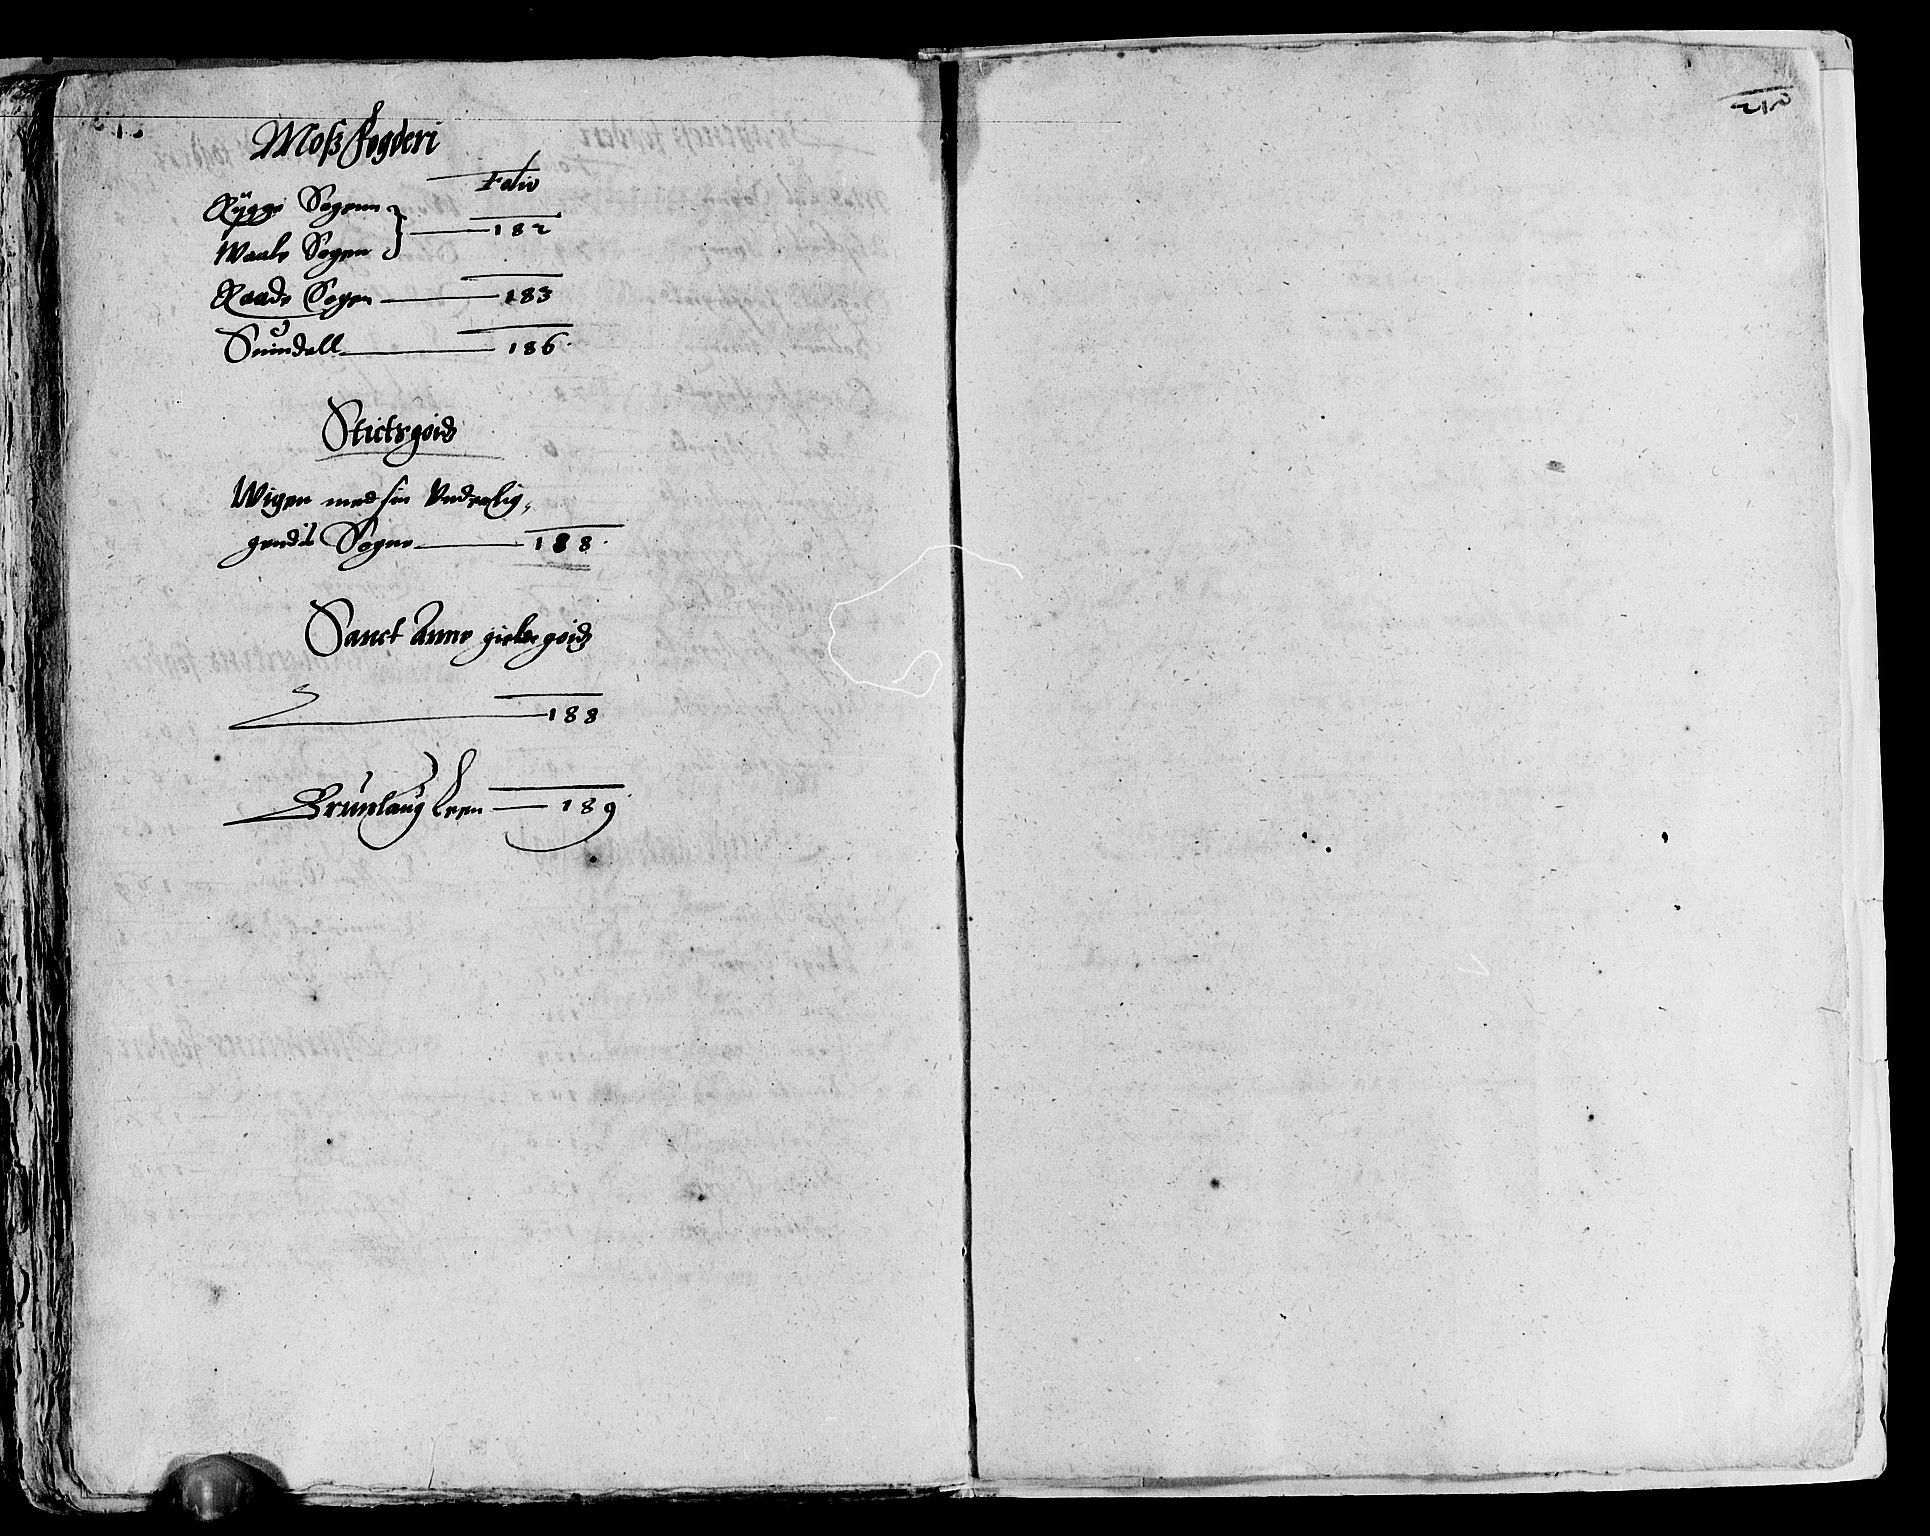 Moß fogderi
Folio
Rÿgge Sogenn
Waale Sogen } 182
Raade Sogen 183
Suindall 186
Stictsgoids
Wigen med sin Underlig,
gendis Sogne 188
Sanct Anne gieldsgoids
188
Brunlaug Leen 189
212